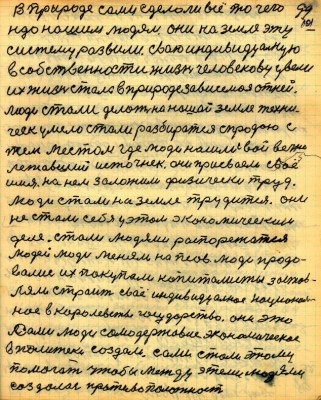 В Природе сами сделали всё то чего 99
надо нашим людям они на земле эту 101
систему развили, свою индивидуалную
в собственности жизн человекову увели
их жизн стала в природе зависемая от ней.
люди стали делат на нашой земле техни
ческ умело стали разбиратся с природою с
тем местом где люди нашли свой
источнек. они присвоем своё
имя. на нем заложим физически труд.
люди стали на земле трудится. они
не стали себя у этом экономическим
деле. стали людями распоряжатся
людей люди меням на псов. люди продо
вали их покупали копиталисты застов
лям строит своё индивидуалное национал
ное в королевств государство. они это
сами люди самодержавие, экономическое
в политеки создали. сами стали тому
помогат чтобы между этеми людями
создалас противоположност